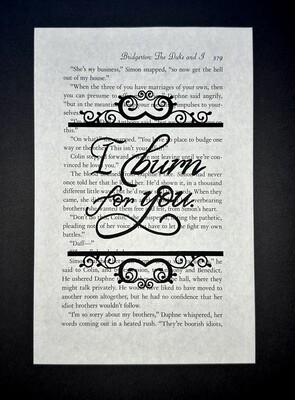 Bridgerton: The Duke and I 379
“She’s my business,” Simon snapped, “so now get the hell
out of my house.”
“When the three of you have marriages of your own, then
you can presume to Daphne said angrily,
“but in the meantime impulses to your-
selves.”
this.”
“On snapped. “You place to budge one
way or the This isn’t
Colin forward, not leaving until we’re con-
vinced he you.”
The Simon had never
once told her that he her. He’d shown it, in a thousand
different little When they
came, she overbearing
brothers; she wanted them felt, from Simon’s heart.
“Don’t do Colin, the pathetic,
pleading note of her voice. have to let me fight my own
battles.”
“Daff—”
I burn
for you.
he
said to Colin, and and Benedict.
He ushered Daphne hall, where they
might talk privately. He would have liked to have moved to
another room altogether, but he had no confidence that her
idiot brothers wouldn’t follow.
“I’m so sorry about my brothers,” Daphne whispered, her
words coming out in a heated rush. “They’re boorish idiots,